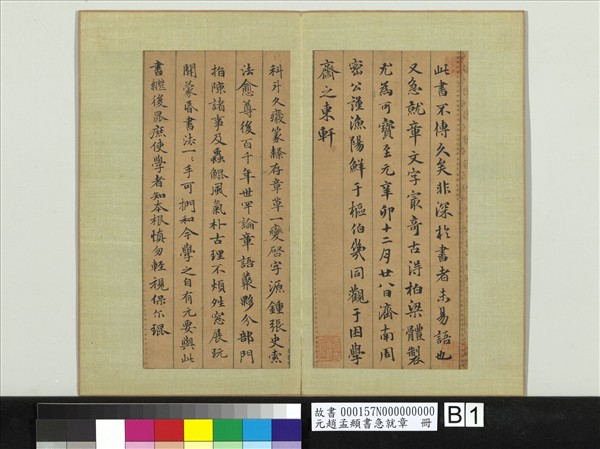 此書不傳久矣非深於書者未易語也
又急就章文字最奇古得柏梁體製
尤為可寶至元辛卯十二月廿八日濟南周
密公謹漁陽鮮于樞伯幾同觀于困學
齋之東軒
科斗久廢篆繇存章草一變啟字源鍾張史索
法愈尊後百千年世罕論章語叢夥分部門
指陳諸事及蟲鯤風氣朴古理不煩姓窓展玩
開蒙昏書法一一手可捫和令學之自有元要與此
書繼後昆庶使學者知本根慎勿輕視保尔琨
故書 000157N000000000
元趙孟頫書急就章 冊
B 1